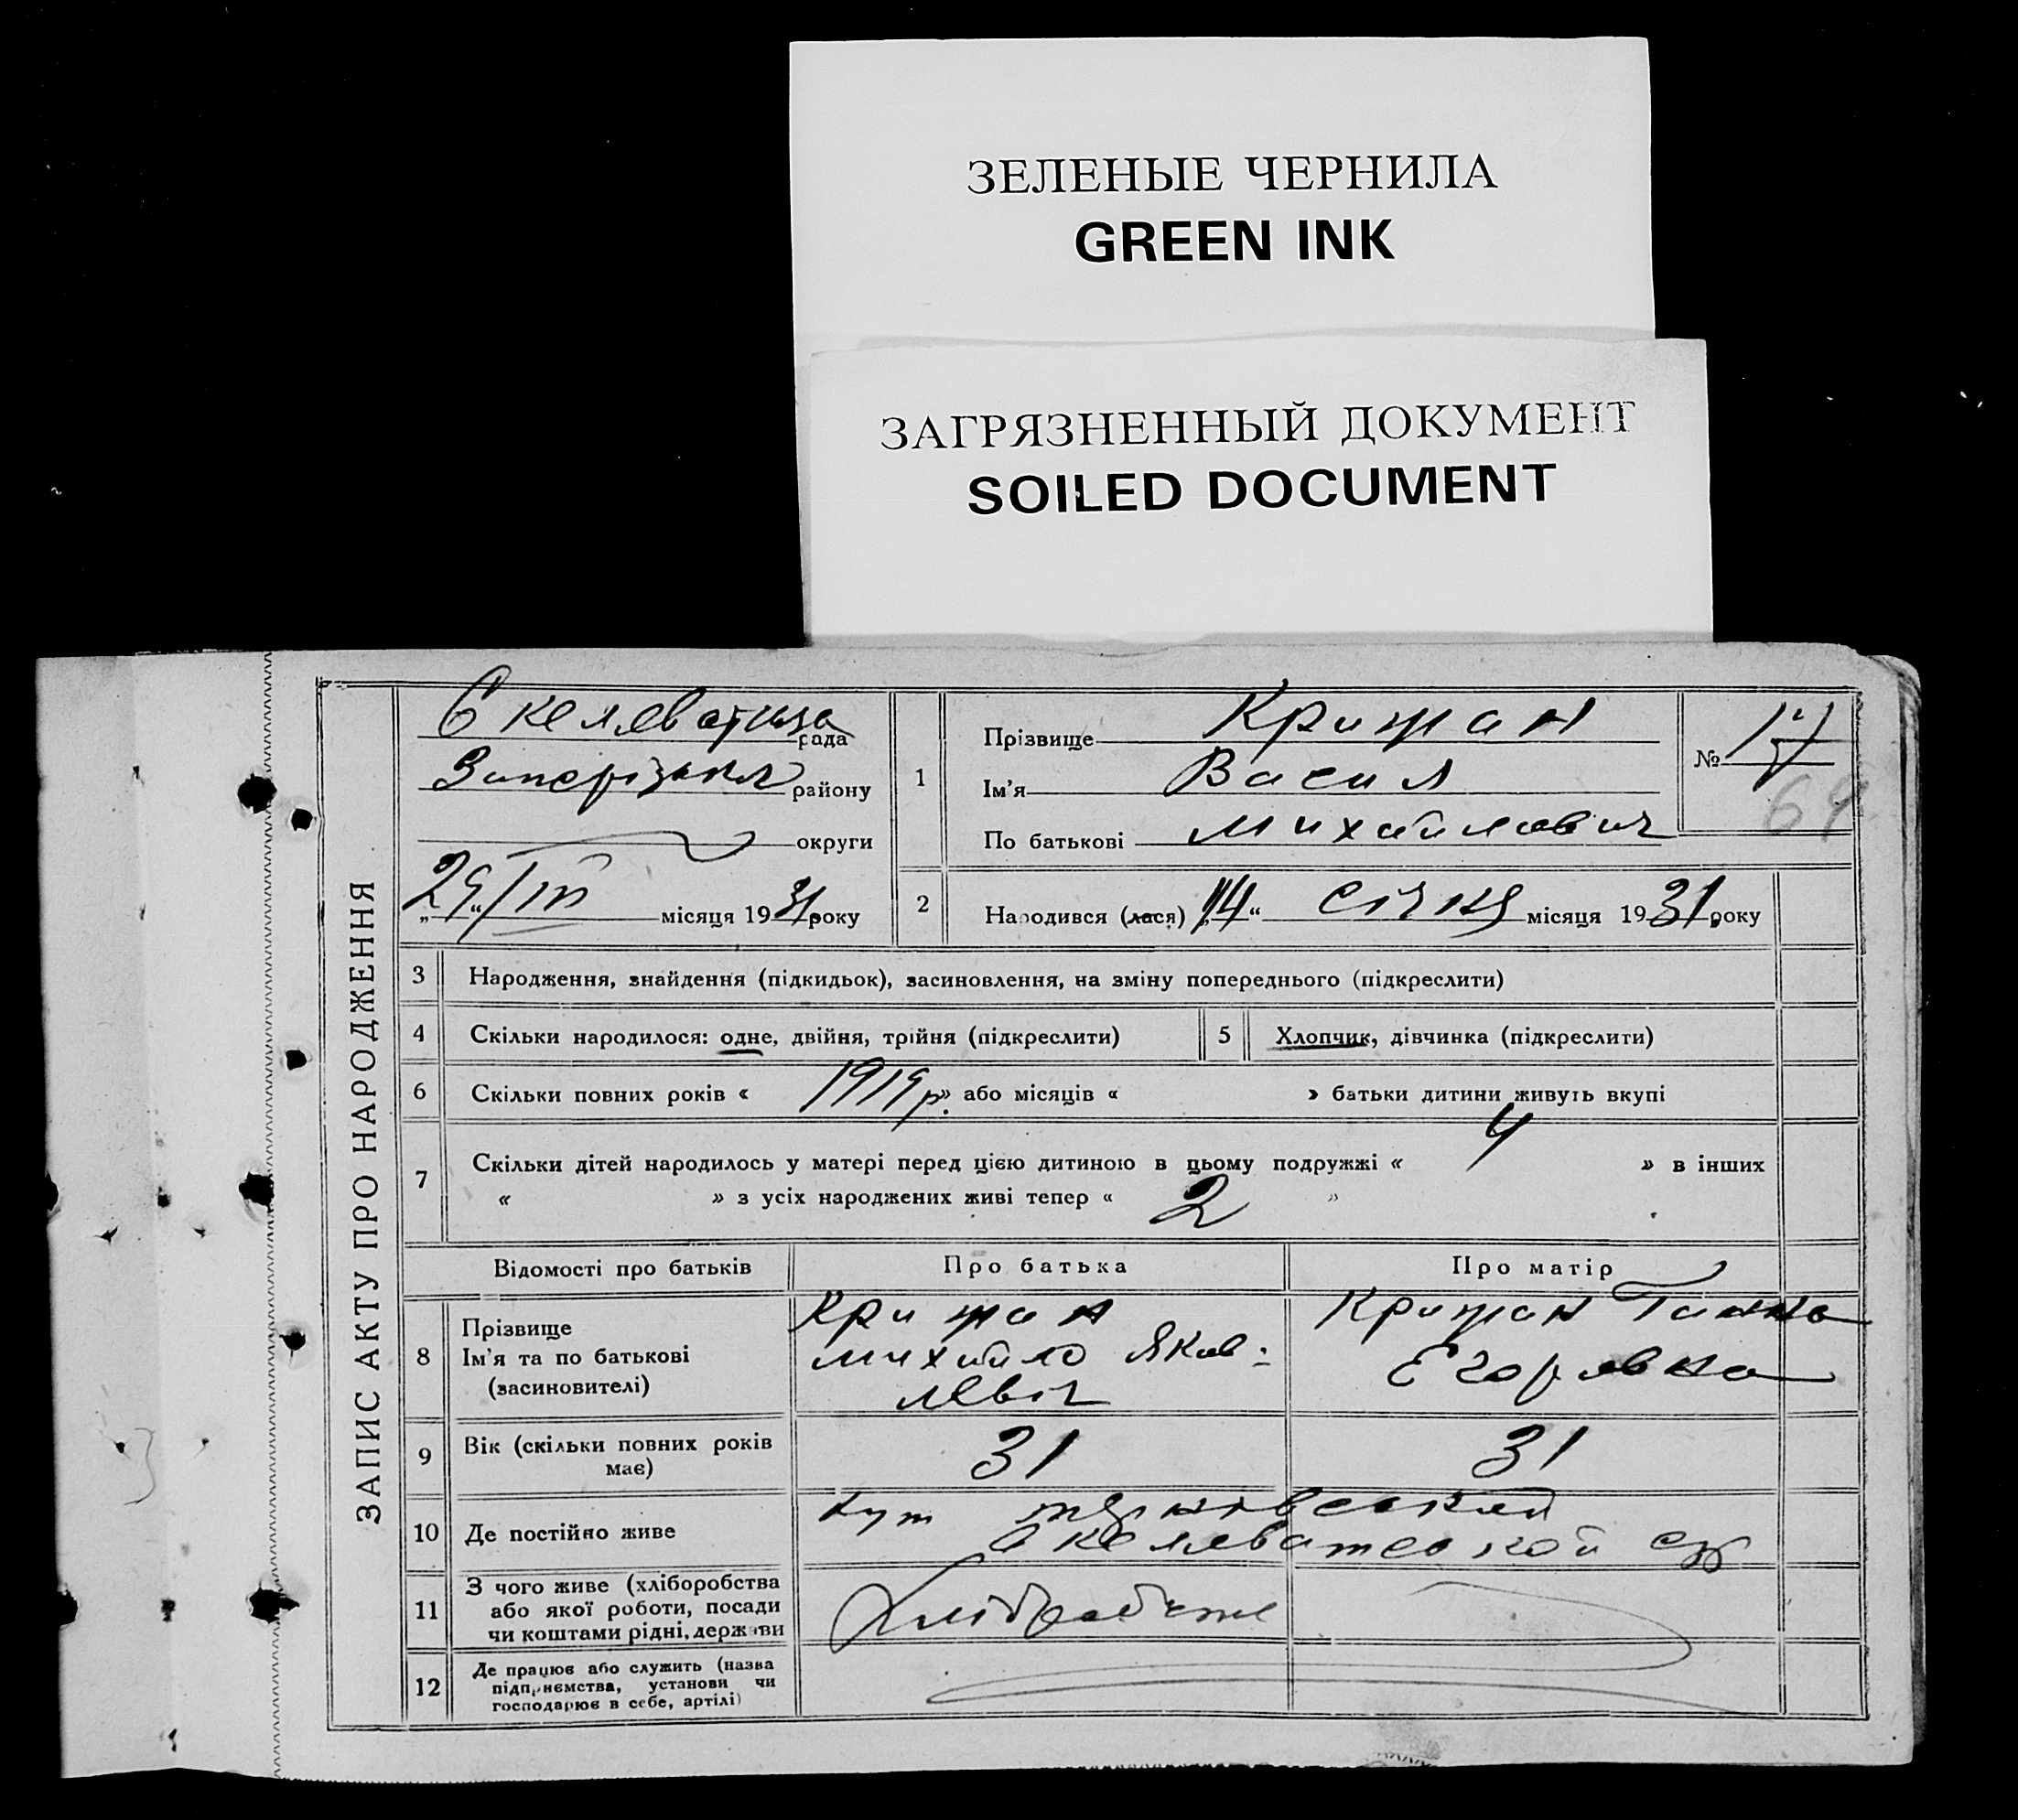 ЗЕЛЕНЫЕ ЧЕРНИЛА
GREEN INK
ЗАГРЯЗНЕННЫЙ ДОКУМЕНТ
SOILED DOCUMENT
ЗАПИС АКТУ ПРО НАРОДЖЕННЯ
рада
району
округи
29/III місяця 1931 року
1
Прізвище Крижан
Ім'я Васил
По батькові Михайлович
№ 17
64
2 Народився (лася) „14“ січня місяця 1931 року
3 Народження, знайдення (підкидьок), засиновлення, на зміну попереднього (підкреслити)
4 Скільки народилося: одне, двійня, трійня (підкреслити) 5 Хлопчик, дівчинка (підкреслити)
6 Скільки повних років « 1919 р. » або місяців « » батьки дитини живуть вкупі
7 Скільки дітей народилось у матері перед цією дитиною в цьому подружжі « 4 » в інших
« » з усіх народжених живі тепер « 2 »
Відомості про батьків Про батька Про матір
8 Прізвище
Ім'я та по батькові
(засиновителі)
Крижан
Михайло Яков-
левіч
Крижан Ганна
Егоровна
9 Вік (скільки повних років
має)
31 31
10 Де постійно живе
11 З чого живе (хліборобства
або якої роботи, посади
чи коштами рідні, держави
12 Де працює або служить (назва
підприємства, установи чи
господарює в себе, артілі)